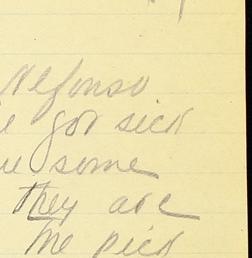 Alfonso
e got sick
ue some
they are
me pick